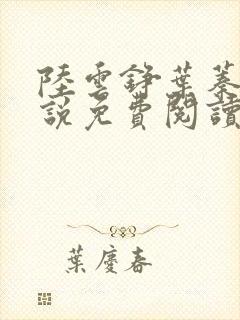 陸雲錚葉蓁
說免費閱讀
葉慶春